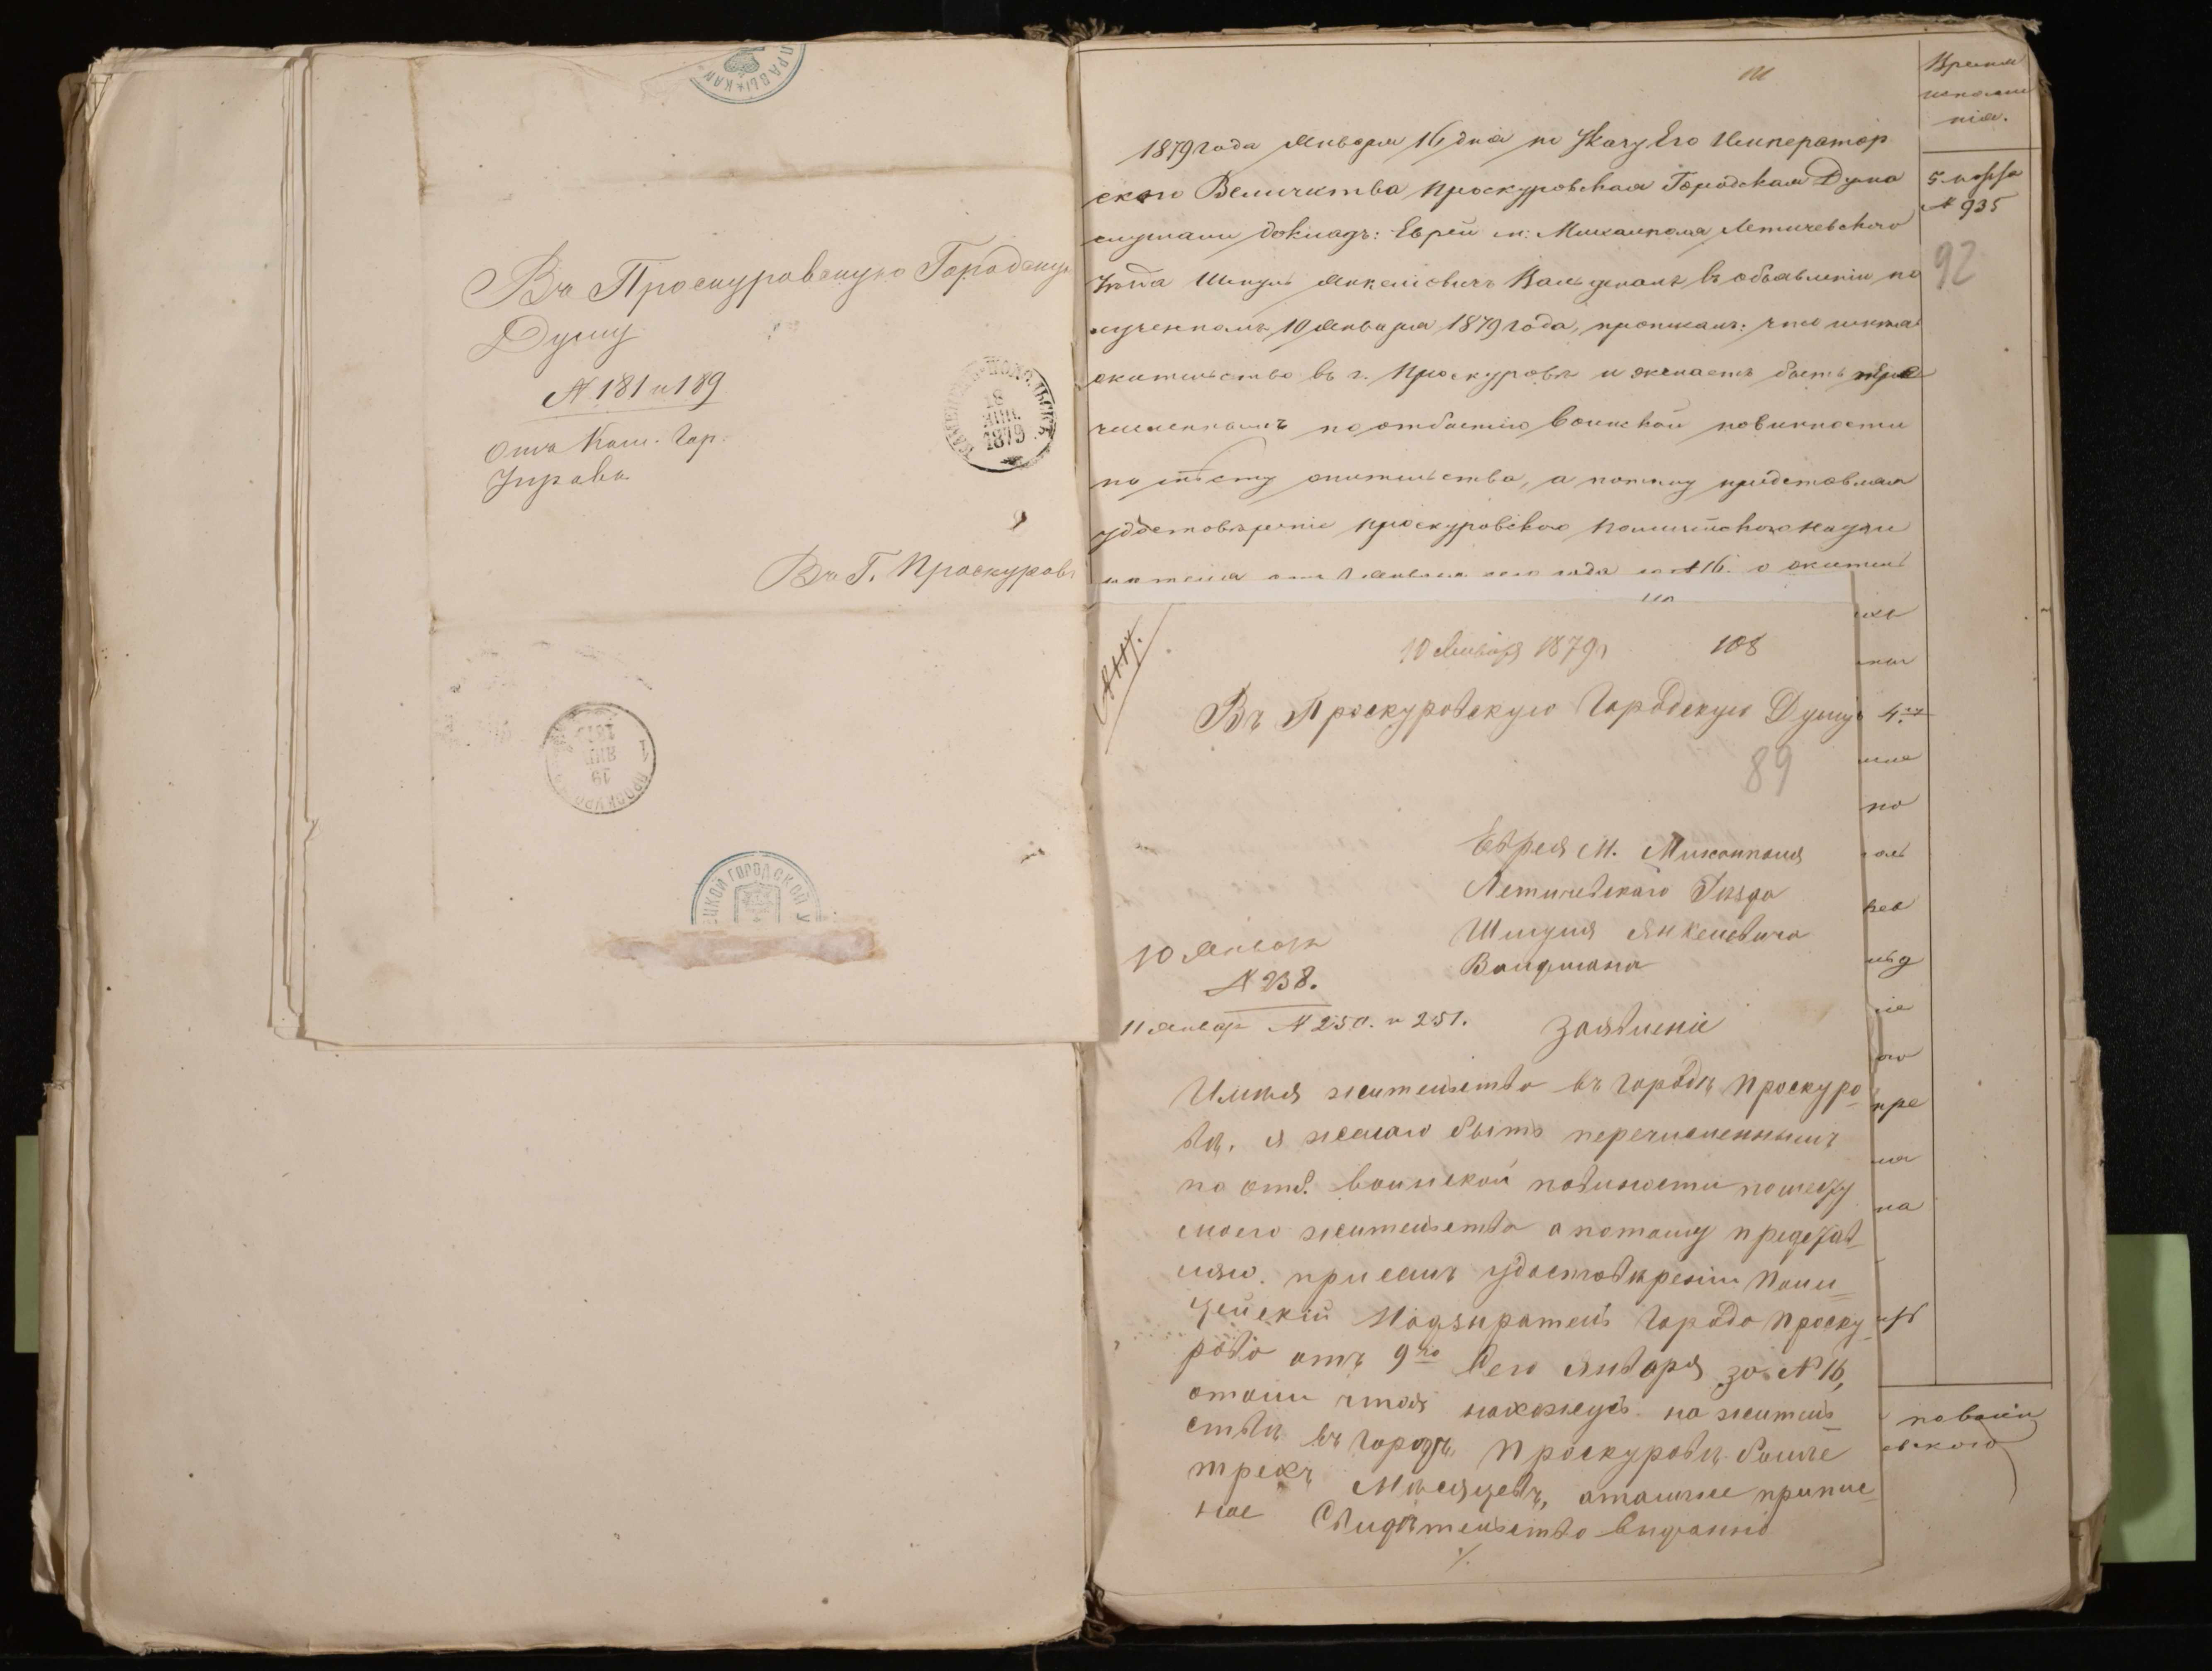 Въ Проскуровскую Городскую
Думу
№ 181 и 189
Отъ Кам. Гор.
Управы
Въ Г. Проскуровъ
18
ЯНВ.
1879
ЦКОЙ ГОРОДСКОЙ У
111
Время
исполне
нія.
№ 935
92
1879 года Января 16 дня по Указу Его Император
скаго Величества Проскуровская Городская Дума
слушали докладъ: Еврей м: Михалполя Летичевскаго
Уѣзда Шмуль Янкелевичъ Вальдманъ въ объявленіи по
лученномъ 10 Января 1879 года, прописалъ: что имѣя
жительство въ г. Проскуровѣ и желаетъ быть
численнымъ по отбытію воинской повинности
по мѣсту жительства, а потому представляя
удостовѣреніе Проскуровскаго Полицейскаго Надзи
рателя отъ сего года за № 16. о житель
110
10 Января 1879 г. 108
Въ Проскуровскую Городскую Думу
89
Еврея М. Михалполя
Летичевскаго Уѣзда
Шмуля Янкелевича
Валдмана
10 Января
№ 238.
11 Январ № 250. и 251.
Заявленіе
Имѣя жительство въ городѣ Проскуро-
вѣ, я желаю быть перечисленнымъ
по отб. воинской повиности по месту
моего жительства а потому представ-
ляю. при семъ удостовѣреніи Поли-
цейскій Надзиратель города Проску
рова отъ 9го сего января за № 16,
отом что я нахожусь на житель
ствѣ въ городѣ Проскуровѣ больше
трехъ Мѣсяцевъ, атакже припис-
ное Свидѣтельство выданно
./.